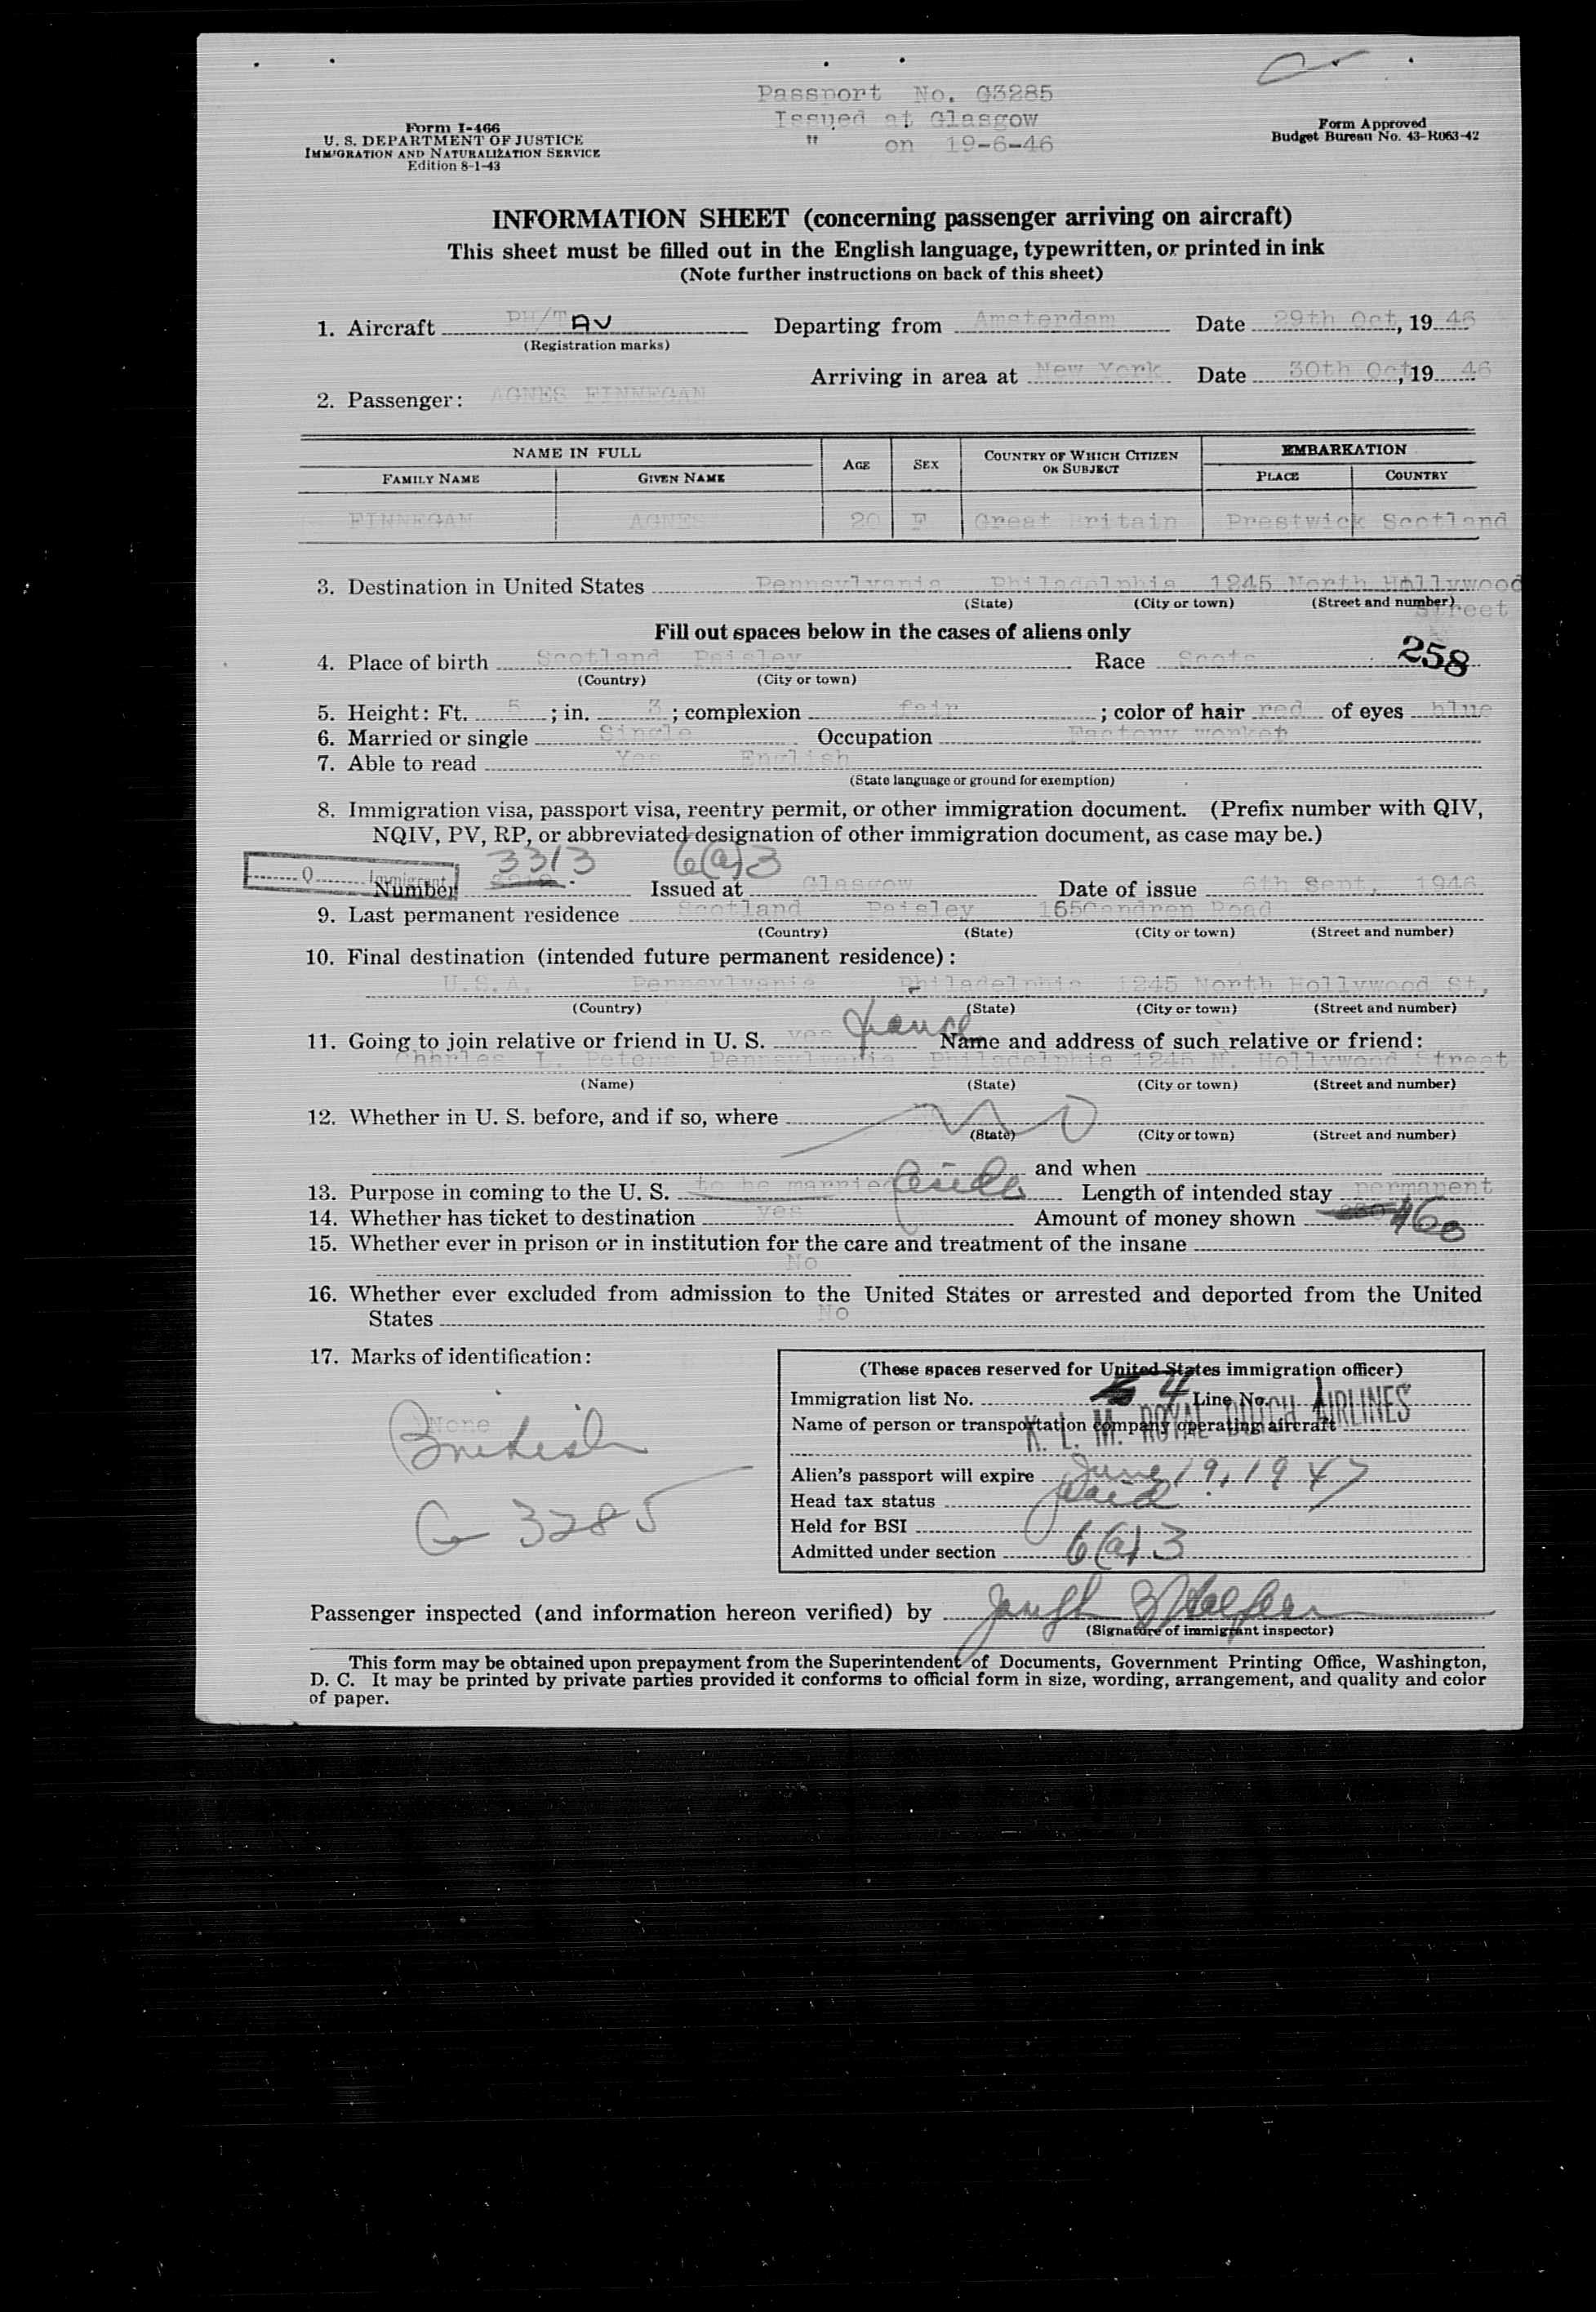 Passport No. G3285
Issued at Glasgow
" on 19-6-46
Form I-466
U. S. DEPARTMENT OF JUSTICE
IMMIGRATION AND NATURALIZATION SERVICE
Edition 8-1-43
Form Approved
Budget Bureau No. 43-R063-42
INFORMATION SHEET (concerning passenger arriving on aircraft)
This sheet must be filled out in the English language, typewritten, or printed in ink
(Note further instructions on back of this sheet)
1. Aircraft PH/TAV Departing from Amsterdam Date 29th Oct, 1946
(Registration marks)
Arriving in area at New York Date 30th Oct, 1946
2. Passenger: AGNES FINNEGAN
NAME IN FULL AGE SEX COUNTRY OF WHICH CITIZEN OR SUBJECT EMBARKATION
FAMILY NAME GIVEN NAME PLACE COUNTRY
FINNEGAN AGNES 20 F Great Britain Prestwick Scotland
3. Destination in United States Pennsylvania Philadelphia 1245 North Hollywood Street
(State) (City or town) (Street and number)
Fill out spaces below in the cases of aliens only
4. Place of birth Scotland Paisley Race Scots 258
(Country) (City or town)
5. Height: Ft. 5; in. 3; complexion fair; color of hair red of eyes blue
6. Married or single Single Occupation Factory worker
7. Able to read Yes English
(State language or ground for exemption)
8. Immigration visa, passport visa, reentry permit, or other immigration document. (Prefix number with QIV,
NQIV, PV, RP, or abbreviated designation of other immigration document, as case may be.)
3313 6(a)3
Q Immigrant
Number Issued at Glasgow Date of issue 6th Sept, 1946
9. Last permanent residence Scotland Paisley 165 Candren Road
(Country) (State) (City or town) (Street and number)
10. Final destination (intended future permanent residence):
U.S.A. Pennsylvania Philadelphia 1245 North Hollywood St.
(Country) (State) (City or town) (Street and number)
11. Going to join relative or friend in U. S. yes Name and address of such relative or friend:
Charles L. Peters Pennsylvania Philadelphia 1245 N. Hollywood Street
(Name) (State) (City or town) (Street and number)
12. Whether in U. S. before, and if so, where No
(State) (City or town) (Street and number)
and when
13. Purpose in coming to the U. S. to be married reside Length of intended stay permanent
14. Whether has ticket to destination yes Amount of money shown 460
15. Whether ever in prison or in institution for the care and treatment of the insane
No
16. Whether ever excluded from admission to the United States or arrested and deported from the United
States No
17. Marks of identification:
None
British
G 3285
(These spaces reserved for United States immigration officer)
Immigration list No. 4 Line No. 1
Name of person or transportation company operating aircraft
K. L. M. ROYAL DUTCH AIRLINES
Alien's passport will expire June 19, 1947
Head tax status Paid
Held for BSI
Admitted under section 6(a)3
Passenger inspected (and information hereon verified) by
(Signature of immigrant inspector)
This form may be obtained upon prepayment from the Superintendent of Documents, Government Printing Office, Washington,
D. C. It may be printed by private parties provided it conforms to official form in size, wording, arrangement, and quality and color
of paper.